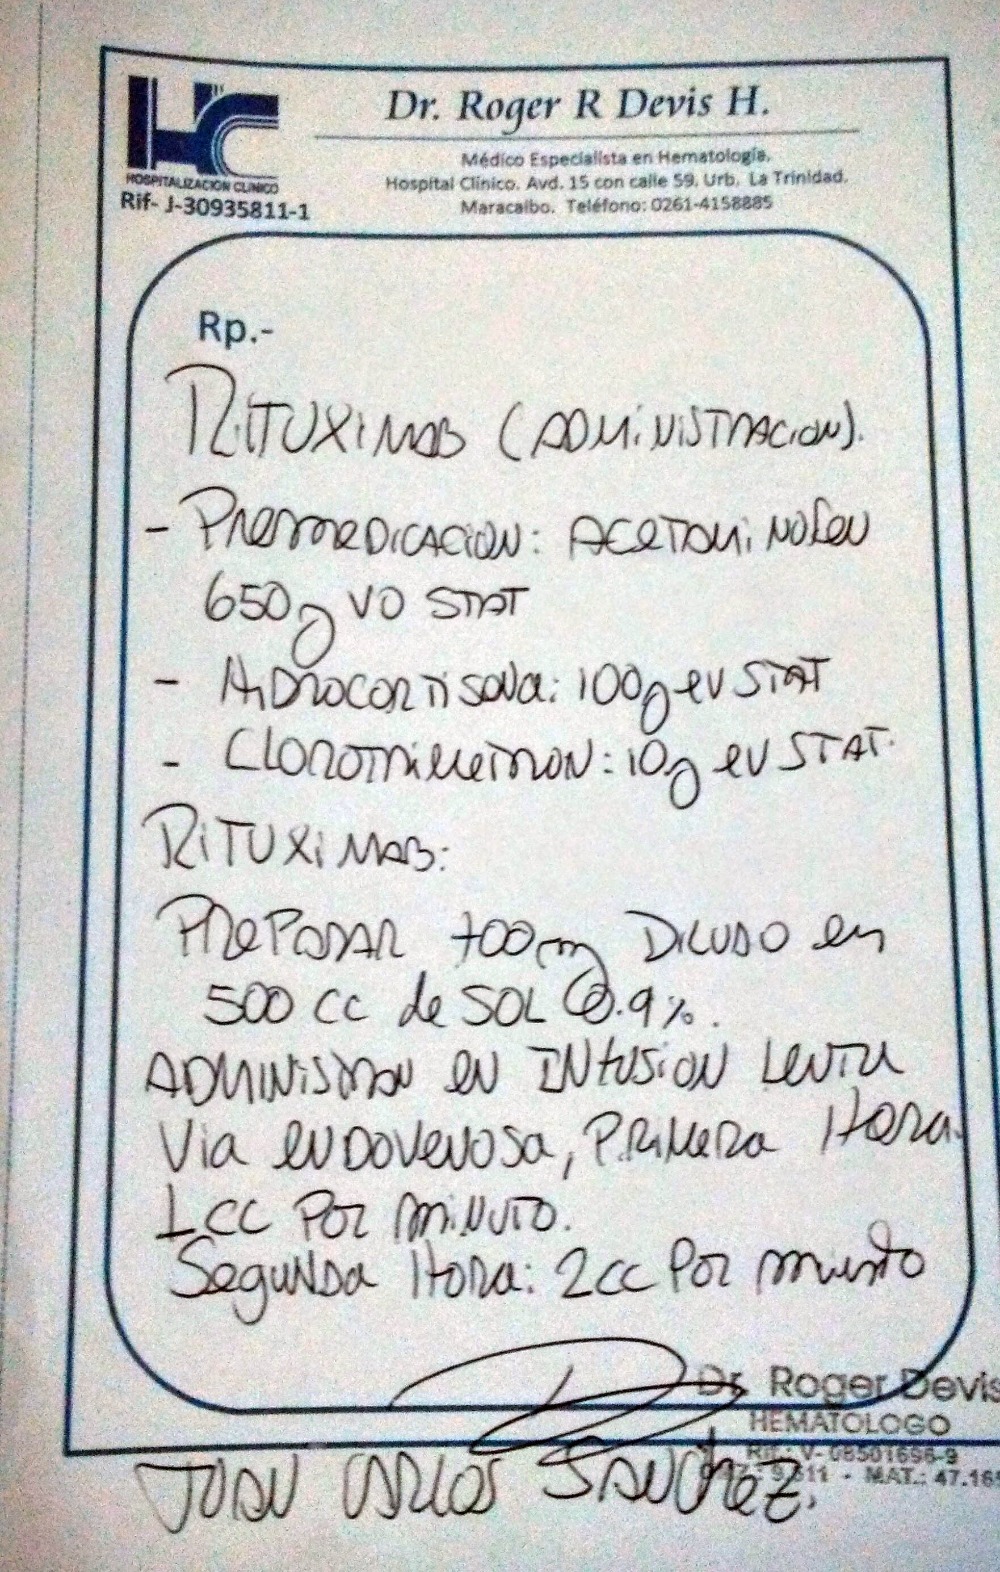 HC
HOSPITALIZACION CLINICO
Rif- J-30935811-1
Dr. Roger R Devis H.
Médico Especialista en Hematología.
Hospital Clínico. Avd. 15 con calle 59. Urb. La Trinidad.
Maracaibo. Teléfono: 0261-4158885
Rp.-
RITUXIMAB (ADMINISTRACION).
- PREMEDICACION: ACETAMINOFEN
650g VO STAT
- HIDROCORTISONA: 100g EV STAT
- CLOROTRIMETRON: 10g EV STAT.
RITUXIMAB:
PREPARAR 700mg DILUDO en
500 CC de SOL 0.9%.
ADMINISTRAR EN INFUSION LENTA
Via ENDOVENOSA, PRIMERA HORA
1CC POR MINUTO.
Segunda Hora: 2cc Por minuto
Dr. Roger Devis
HEMATOLOGO
Rif.: V- 08501696-9
MAT.: 47.16
JUAN CARLOS SANCHEZ.